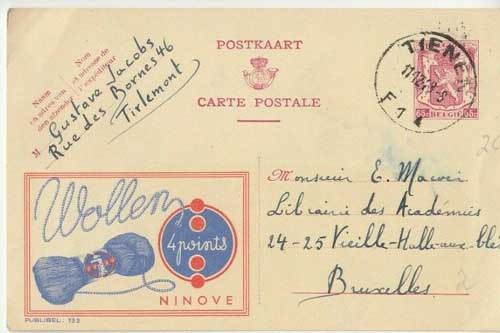 POSTKAART
CARTE POSTALE
Naam
en adres van
den afzender
Nom
et adresse de
l'expéditeur
M Gustave Jacobs
Rue des Bornes 46
Tirlemont
TIENEN
F 1
65c BELGIE 65c
Wollen
4 points
NINOVE
PUBLIBEL: 132
Monsieur E.
Librairie des Académies
24-25 Vieille-Halle-aux-blés
Bruxelles
2